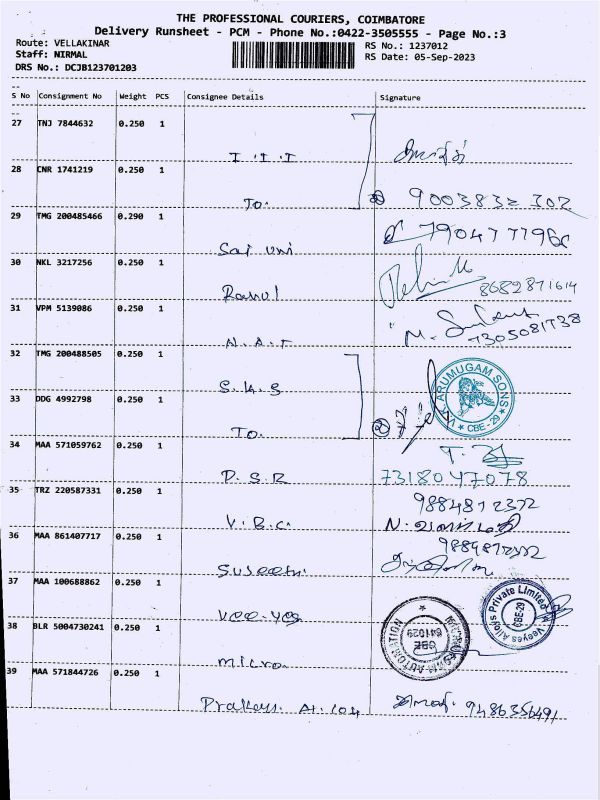 THE PROFESSIONAL COURIERS, COIMBATORE
Delivery Runsheet - PCM - Phone No.:0422-3505555 - Page No.:3
Route: VELLAKINAR
RS No.: 1237012
Staff: NIRMAL
RS Date: 05-Sep-2023
DRS No.: DCJB123701203
S No Consignment No Weight PCS Consignee Details Signature
27 TNJ 7844632 0.250 1
I.I.I
28 CNR 1741219 0.250 1
To. 2 9003832302
29 TMG 200485466 0.290 1 7904777966
Sai Uni
30 NKL 3217256 0.250 1
Rahul 8682871614
31 VPM 5139086 0.250 1
N.A.T M. 7305081738
32 TMG 200488505 0.250 1
S.A.S
V.S. ARUMUGAM SONS
CBE-29
33 DDG 4992798 0.250 1
To. 2
34 MAA 571059762 0.250 1
P.S.R 7318047078
35 TRZ 220587331 0.250 1 9884812322
V.B.C. N.
36 MAA 861407717 0.250 1 9884812322
Suseetri
37 MAA 100688862 0.250 1
Vee-yes
Veeyes Alloys Private Limited
CBE-29
38 BLR 5004730241 0.250 1
Micro
AUTOMATION
CBE
641029
39 MAA 571844726 0.250 1
Prakash. A1.104 9486356491